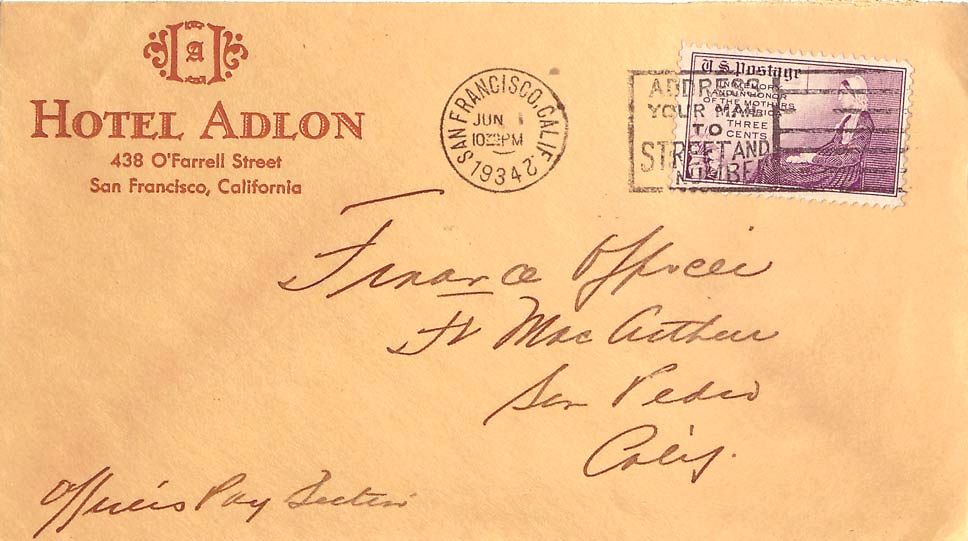 A
HOTEL ADLON
438 O'Farrell Street
San Francisco, California
SAN FRANCISCO, CALIF.
JUN 1
10 PM
1934
2
ADDRESS
YOUR MAIL
TO
STREET AND
NUMBER
U.S. Postage
IN MEMORY
AND IN HONOR
OF THE MOTHERS
OF AMERICA
THREE
CENTS
Finance Officer
Ft Mac Arthur
San Pedro
Calif.
Officers Pay Section